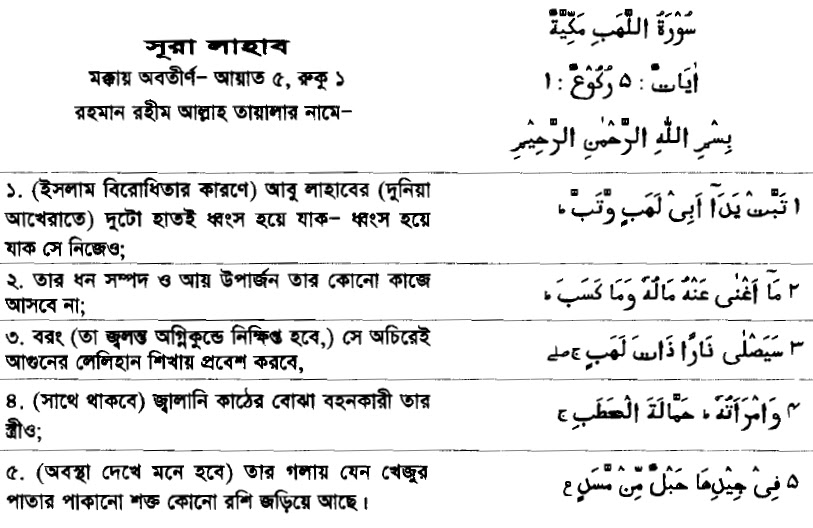 সূরা লাহাব
মক্কায় অবতীর্ণ– আয়াত ৫, রুকু ১
রহমান রহীম আল্লাহ তায়ালার নামে–
سُوْرَةُ اللَّهَبِ مَكِّيَّةٌ
اٰيَاتٌ : ۵ رُكُوْعٌ : ۱
بِسْمِ اللّٰهِ الرَّحْمٰنِ الرَّحِيْمِ
১. (ইসলাম বিরোধিতার কারণে) আবু লাহাবের (দুনিয়া
আখেরাতে) দুটো হাতই ধ্বংস হয়ে যাক– ধ্বংস হয়ে
যাক সে নিজেও;
۱ تَبَّتْ يَدَآ اَبِىْ لَهَبٍ وَّتَبَّ ؕ
২. তার ধন সম্পদ ও আয় উপার্জন তার কোনো কাজে
আসবে না;
۲ مَآ اَغْنٰى عَنْهُ مَالُهٗ وَمَا كَسَبَ ؕ
৩. বরং (তা জ্বলন্ত অগ্নিকুন্ডে নিক্ষিপ্ত হবে,) সে অচিরেই
আগুনের লেলিহান শিখায় প্রবেশ করবে,
۳ سَيَصْلٰى نَارًا ذَاتَ لَهَبٍ ج صلے
৪. (সাথে থাকবে) জ্বালানি কাঠের বোঝা বহনকারী তার
স্ত্রীও;
۴ وَامْرَاَتُهٗ ؕ حَمَّالَةَ الْحَطَبِ ج
৫. (অবস্থা দেখে মনে হবে) তার গলায় যেন খেজুর
পাতার পাকানো শক্ত কোনো রশি জড়িয়ে আছে।
۵ فِىْ جِيْدِهَا حَبْلٌ مِّنْ مَّسَدٍ ع